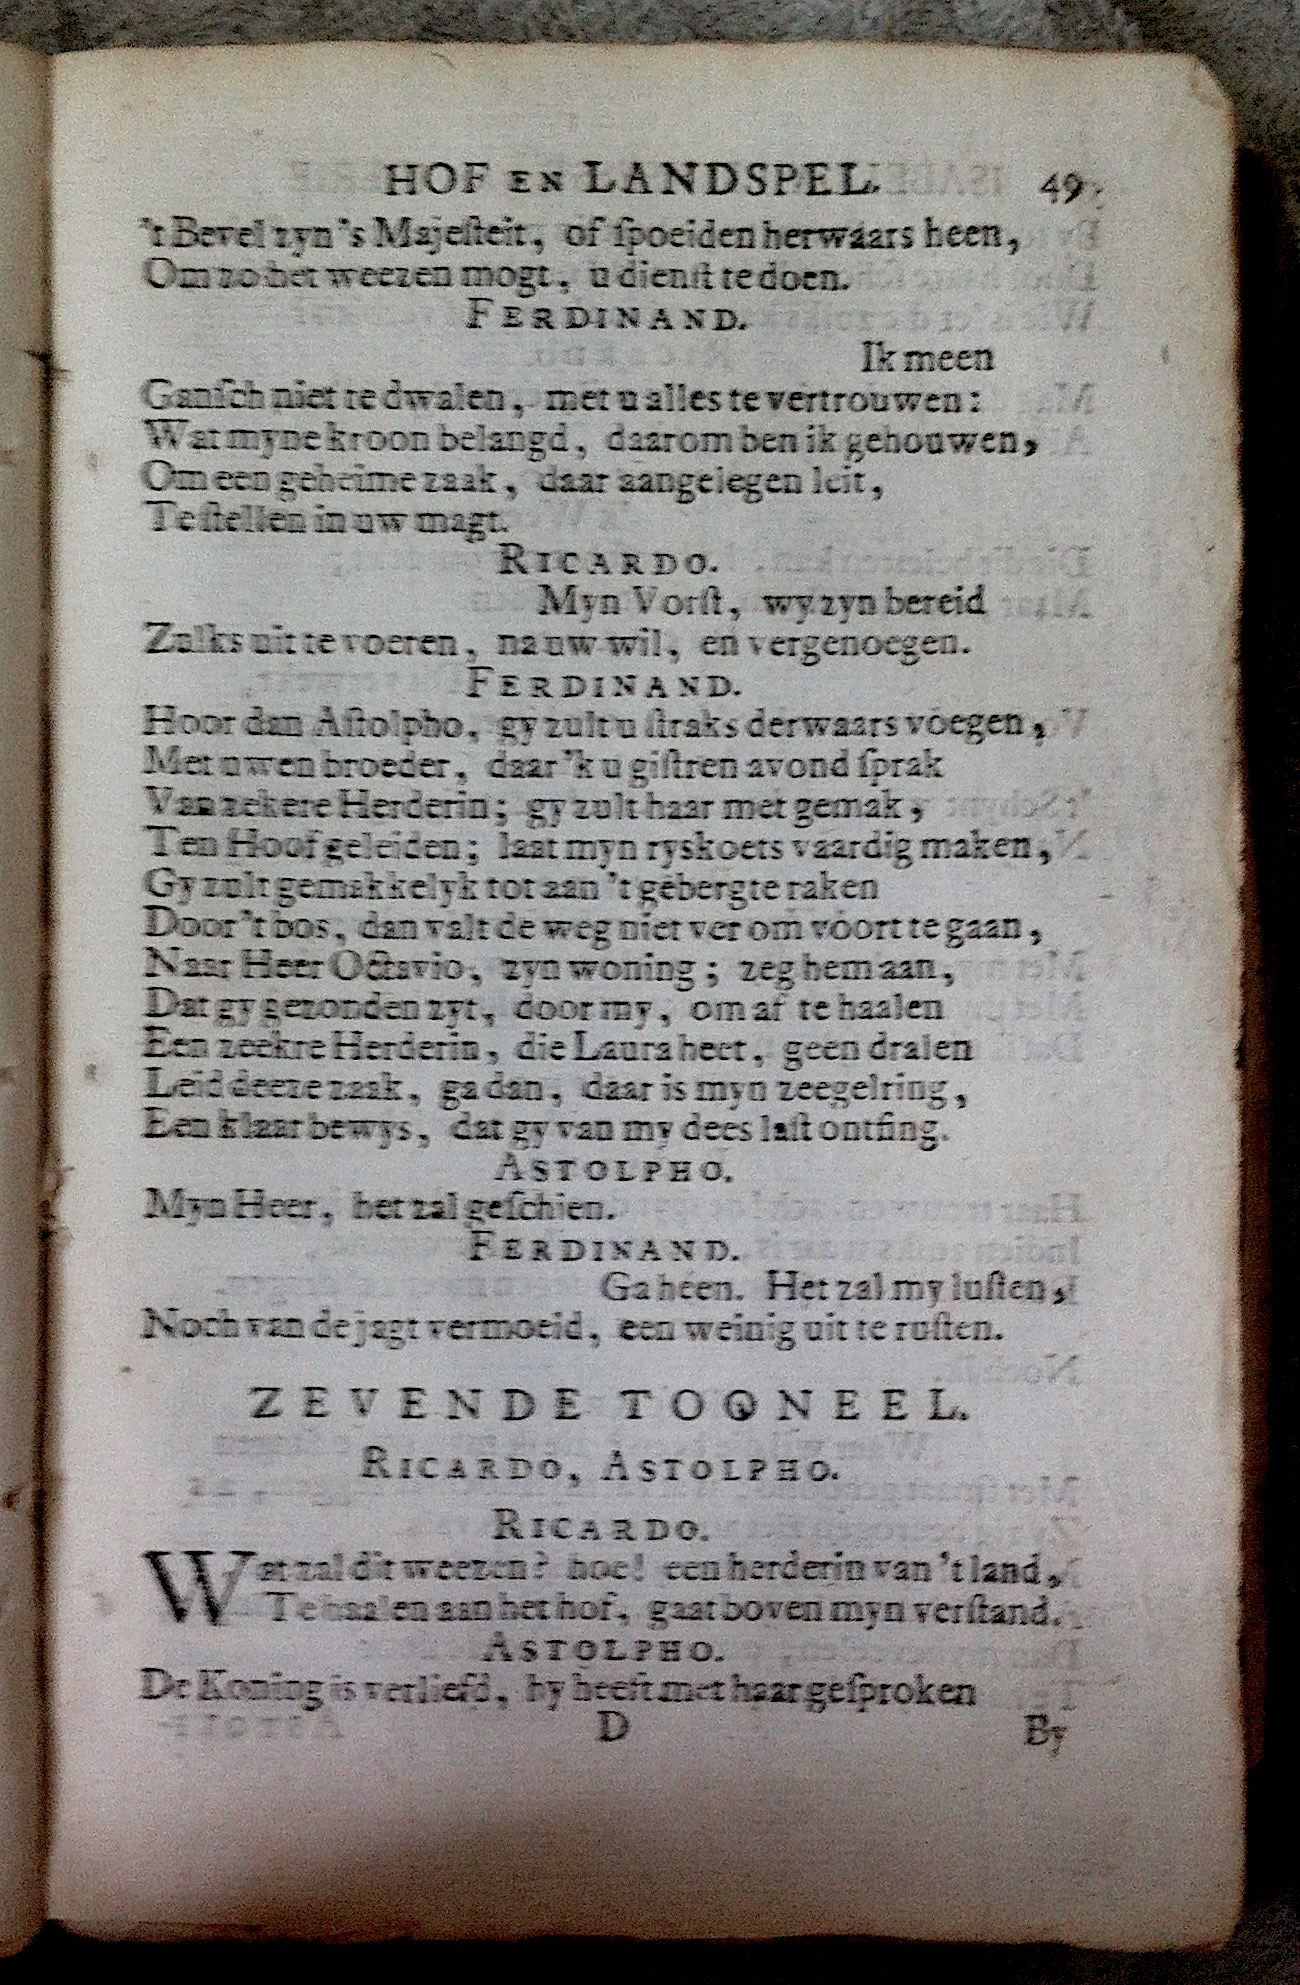 HOF EN LANDSPEL. 49
't Bevel zyn 's Majeſteit, of ſpoeiden herwaars heen,
Om zo het weezen mogt, u dienſt te doen.
FERDINAND.
Ik meen
Ganſch niet te dwalen, met u alles te vertrouwen:
Wat myne kroon belangd, daarom ben ik gehouwen,
Om een geheime zaak, daar aangelegen leit,
Te ſtellen in uw magt.
RICARDO.
Myn Vorſt, wy zyn bereid
Zulks uit te voeren, na uw wil, en vergenoegen.
FERDINAND.
Hoor dan Aſtolpho, gy zult u ſtraks derwaars voegen,
Met uwen broeder, daar 'k u giſtren avond ſprak
Van zekere Herderin; gy zult haar met gemak,
Ten Hoof geleiden; laat myn ryskoets vaardig maken,
Gy zult gemakkelyk tot aan 't gebergte raken
Door 't bos, dan valt de weg niet ver om voort te gaan,
Naar Heer Octavio, zyn woning; zeg hem aan,
Dat gy gezonden zyt, door my, om af te haalen
Een zeekre Herderin, die Laura heet, geen dralen
Leid deeze zaak, ga dan, daar is myn zeegelring,
Een klaar bewys, dat gy van my dees laſt ontfing.
ASTOLPHO.
Myn Heer, het zal geſchien.
FERDINAND.
Ga heen. Het zal my luſten,
Noch van de jagt vermoeid, een weinig uit te ruſten.
ZEVENDE TOONEEL.
RICARDO, ASTOLPHO.
RICARDO.
Wat zal dit weezen? hoe! een herderin van 't land,
Te haalen aan het hof, gaat boven myn verſtand.
ASTOLPHO.
De Koning is verliefd, hy heeft met haar geſproken
D By